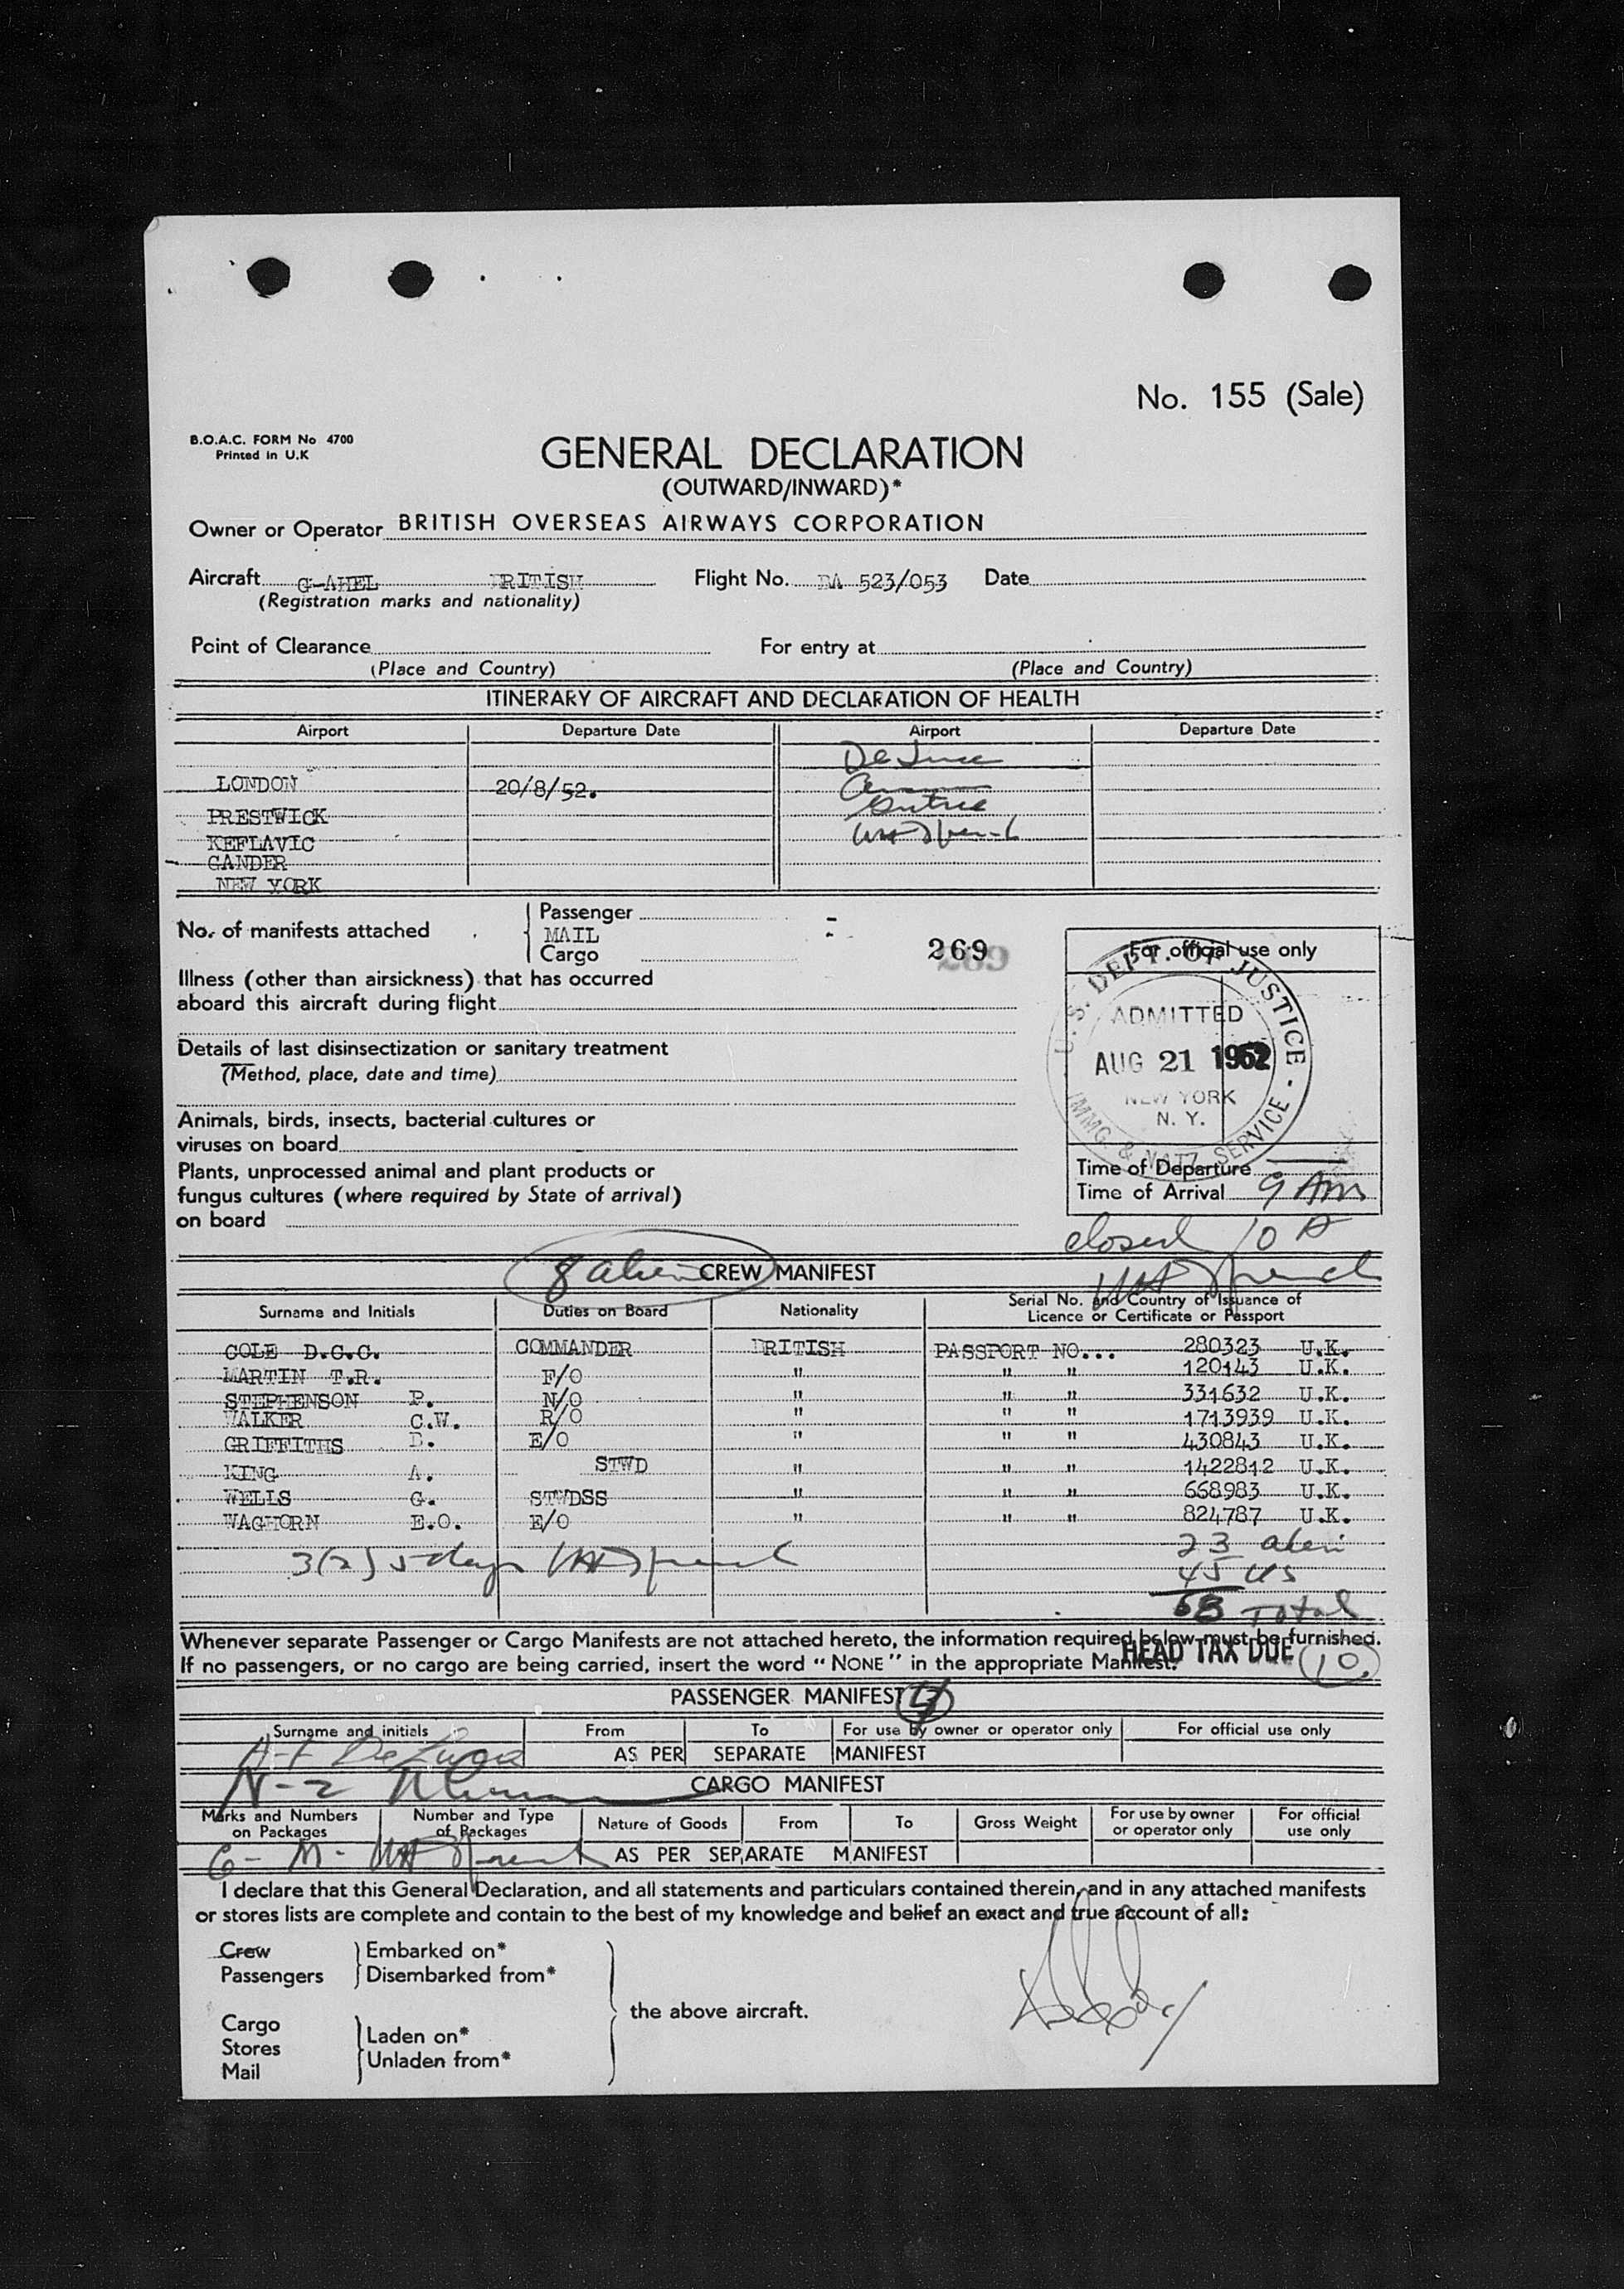 No. 155 (Sale)
B.O.A.C. FORM No 4700
Printed in U.K
GENERAL DECLARATION
(OUTWARD/INWARD)*
Owner or Operator BRITISH OVERSEAS AIRWAYS CORPORATION
Aircraft G-AHEL BRITISH Flight No. BA 523/053 Date
(Registration marks and nationality)
Point of Clearance For entry at
(Place and Country) (Place and Country)
ITINERARY OF AIRCRAFT AND DECLARATION OF HEALTH
Airport Departure Date Airport Departure Date
LONDON 20/8/52.
PRESTWICK
KEFLAVIC
GANDER
NEW YORK
No. of manifests attached
Passenger
MAIL
Cargo
269
Illness (other than airsickness) that has occurred
aboard this aircraft during flight
Details of last disinsectization or sanitary treatment
(Method, place, date and time)
Animals, birds, insects, bacterial cultures or
viruses on board
Plants, unprocessed animal and plant products or
fungus cultures (where required by State of arrival)
on board
For official use only
U.S. DEPT. OF JUSTICE
ADMITTED
AUG 21 1952
NEW YORK
N. Y.
IMMG. & NATZ. SERVICE
Time of Departure
Time of Arrival 9 Am
closed 10 A
8 alien CREW MANIFEST
Surname and Initials Duties on Board Nationality Serial No. and Country of Issuance of
Licence or Certificate or Passport
COLE D.G.C. COMMANDER BRITISH PASSPORT NO... 280323 U.K.
MARTIN T.R. F/O " " " 120143 U.K.
STEPHENSON P. N/O " " " 331632 U.K.
WALKER C.W. R/O " " " 1713939 U.K.
GRIFFITHS D. E/O " " " 430843 U.K.
KING A. STWD " " " 1422812 U.K.
WELLS G. STWDSS " " " 668983 U.K.
WAGHORN E.O. E/O " " " 824787 U.K.
3(2) 5 days
23 alien
45 US
68 Total
Whenever separate Passenger or Cargo Manifests are not attached hereto, the information required below must be furnished.
If no passengers, or no cargo are being carried, insert the word "NONE" in the appropriate Manifest.
HEAD TAX DUE 10
PASSENGER MANIFEST
Surname and initials From To For use by owner or operator only For official use only
AS PER SEPARATE MANIFEST
CARGO MANIFEST
Marks and Numbers on Packages Number and Type of Packages Nature of Goods From To Gross Weight For use by owner or operator only For official use only
AS PER SEPARATE MANIFEST
I declare that this General Declaration, and all statements and particulars contained therein, and in any attached manifests
or stores lists are complete and contain to the best of my knowledge and belief an exact and true account of all:
Crew
Passengers
Embarked on*
Disembarked from*
the above aircraft.
Cargo
Stores
Mail
Laden on*
Unladen from*